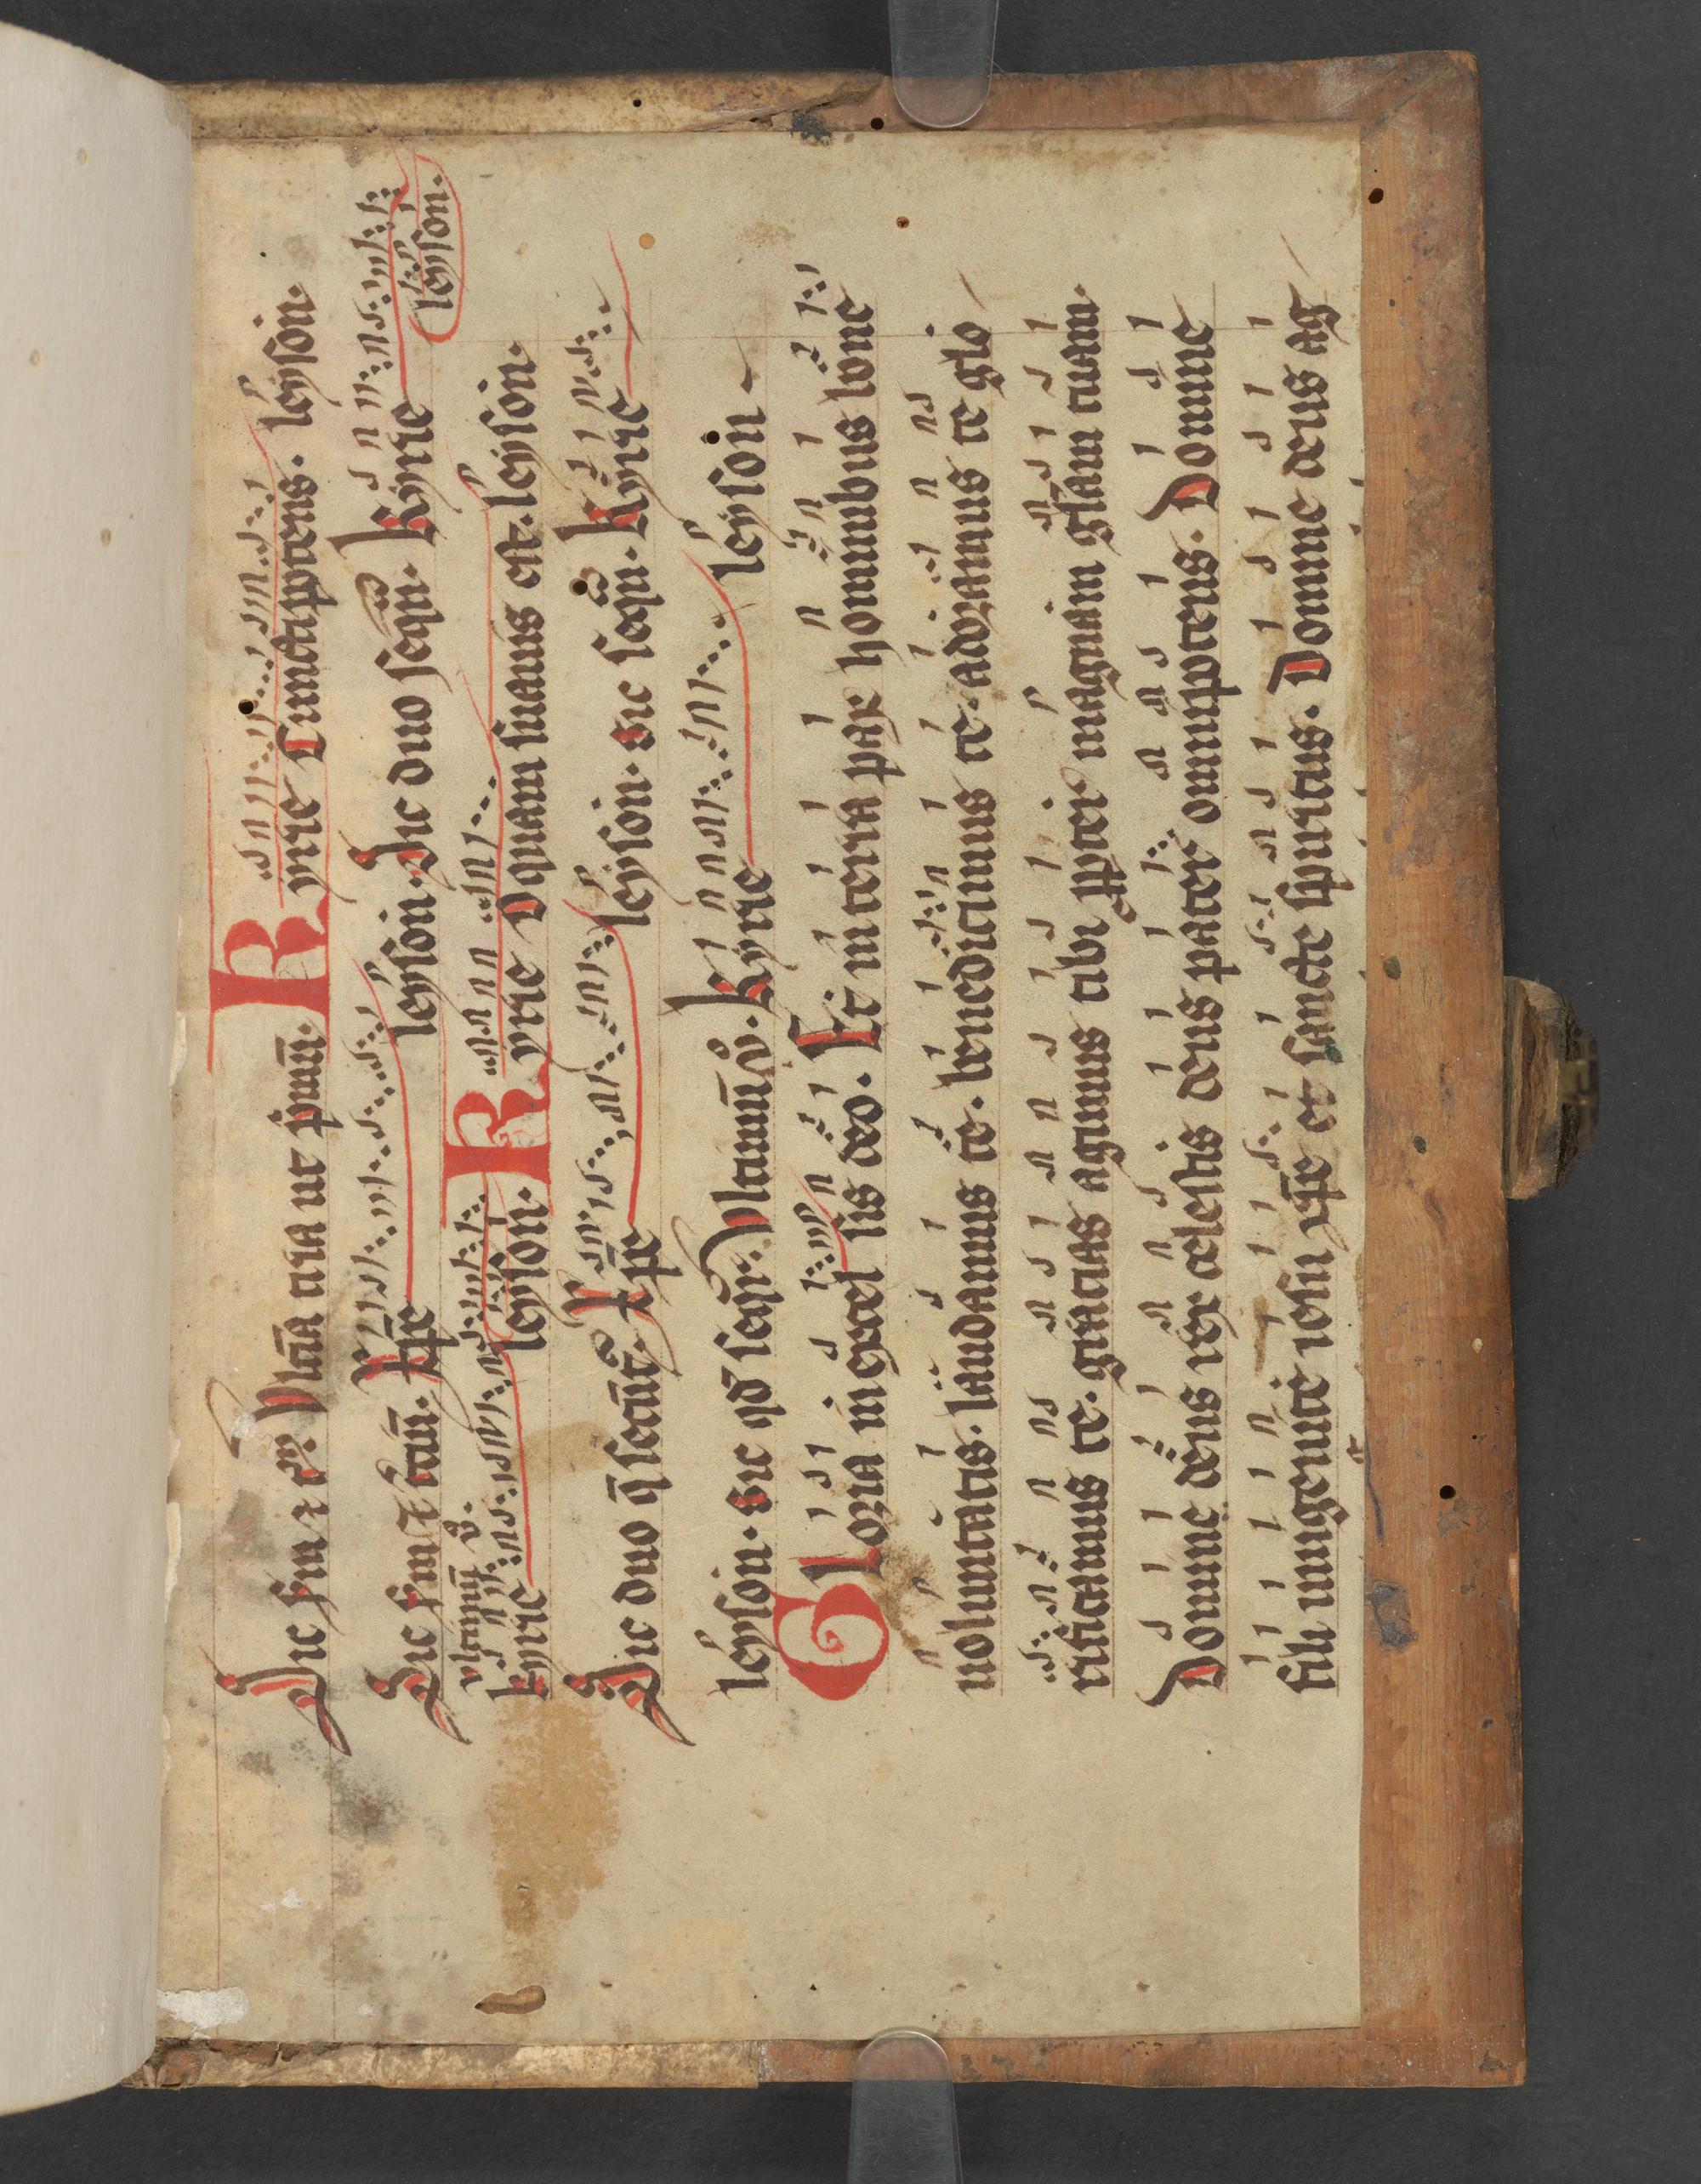 Sic scdm ⁊ Vltia tria ut pimū. Kyrie Cunctaptens. leyson.
Sic scdm ⁊ tciū. Xpe leyson. Sic duo seqn̄. Kyrie
leyson.
vltimū v̊.
kyrie leyson. Kyrie O quam suauis est. leyson.
Sic duo q̄ secunt̄. Xpe leyson. sic seqn̄. Kyrie
leyson. sic qd̄ seqr̄. Vltimū v̊. Kyrie leyson
GLoria in excel sis deo. Et in terra pax hominibus bone
uoluntatis. laudamus te. benedicimus te. adoramus te glo
rificamus te. gratias agimus tibi ppter magnam glam tuam.
Domine deus rex celestis deus pater omniptens. Domine
fili unigenite iesu xpe et sancte spiritus. Domine deus ag